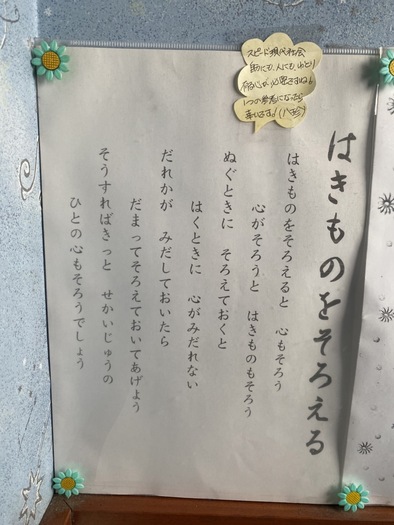 はきものをそろえる
はきものをそろえると　心もそろう
心がそろうと　はきものもそろう
ぬぐときに　そろえておくと
はくときに　心がみだれない
だれかが　みだしておいたら
だまってそろえておいてあげよう
そうすればきっと　せかいじゅうの
ひとの心もそろうでしょう
スピード現代社会
物にも、人にもゆとり
心が必要ですね!
1つの参考になったら
幸いです!